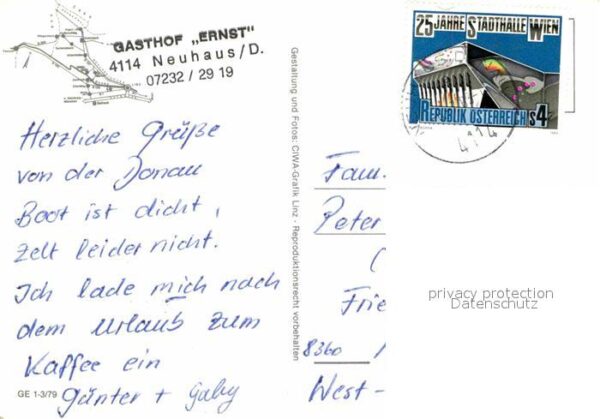 GASTHOF „ERNST"
4114 Neuhaus/D.
07232 / 29 19
Herzliche Grüße
von der Donau
Boot ist dicht,
Zelt leider nicht.
Ich lade mich nach
dem Urlaub zum
Kaffee ein
Günter + Gaby
GE 1-3/79
Gestaltung und Fotos: CIWA-Grafik Linz · Reproduktionsrecht vorbehalten
25 JAHRE STADTHALLE WIEN
REPUBLIK ÖSTERREICH S4
4114
Fam.
Peter
(
Frie
8360
West-
privacy protection
Datenschutz